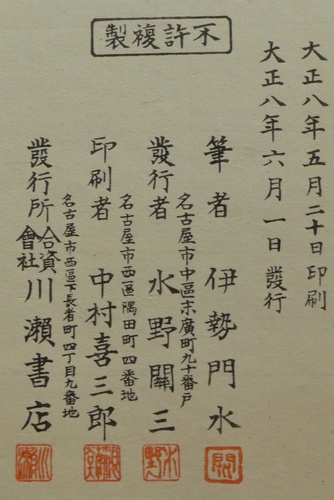 大正八年五月二十日印刷
大正八年六月一日發行
不許複製
筆者 伊勢門水
名古屋市中區末廣町九十番戸
發行者 水野關三
名古屋市西區隅田町四番地
印刷者 中村喜三郎
名古屋市西區下長者町四丁目九番地
發行所 合資會社 川瀬書店